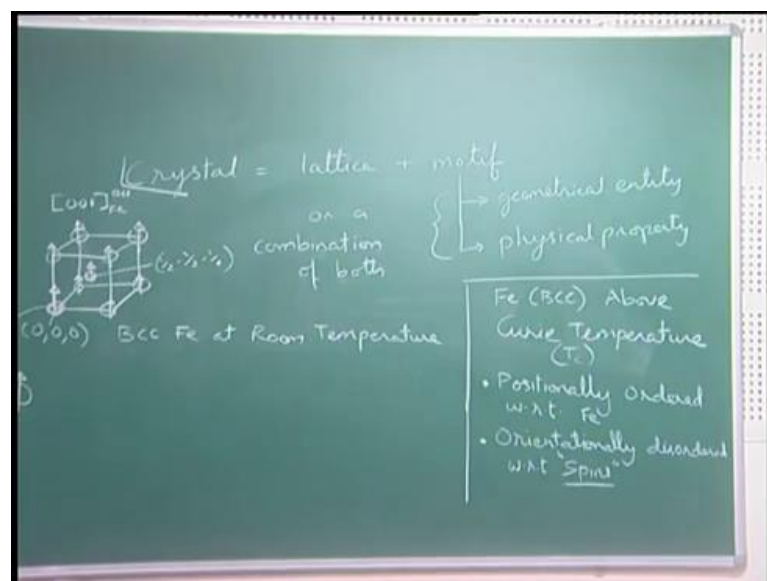 Crystal = lattice + motif
→ geometrical entity
→ physical property
or a
combination
of both
[001]
Fe
(½, ½, ½)
(0,0,0) BCC Fe at Room Temperature
Fe (BCC) Above
Curie Temperature
(Tc)
• Positionally ordered
w.r.t. Fe
• Orientationally disordered
w.r.t "Spins"